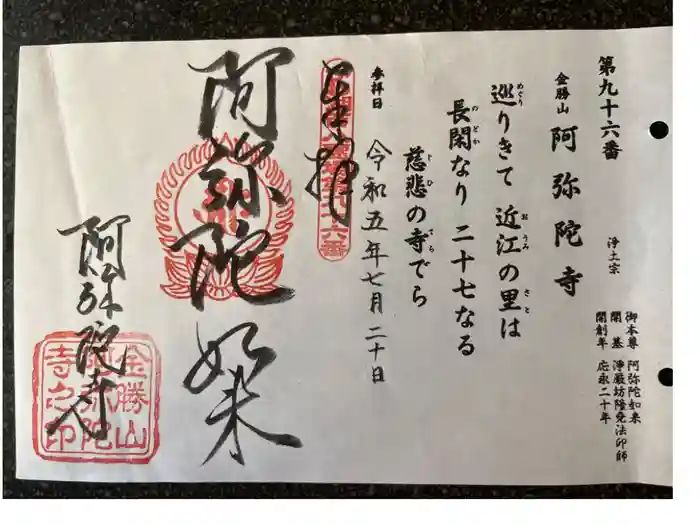 第九十六番
金勝山 阿弥陀寺 浄土宗
御本尊 阿弥陀如来
開基 浄厳坊隆尭法印師
開創年 応永二十年
巡りきて 近江の里は
めぐり おうみ さと
長閑なり 二十七なる
のどか
慈悲の寺でら
じひ てら
参拝日 令和五年七月二十日
奉拝
九十六番
阿弥陀如来
阿弥陀寺
金勝山
阿弥陀
寺之印